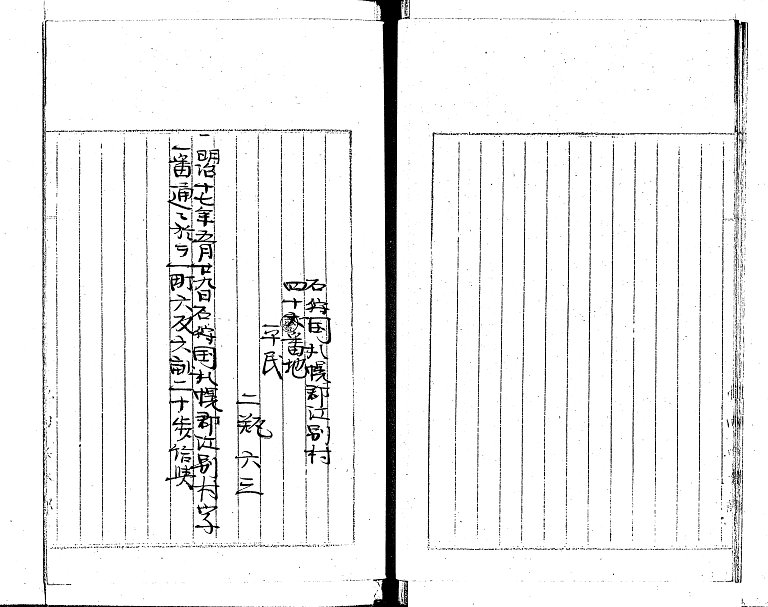 石狩国札幌郡江別村
四十六番地
平民
二瓶六三
一明治十七年五月廿九日石狩国札幌郡江別村字
一番通ニ於テ一町六反六畝二十歩